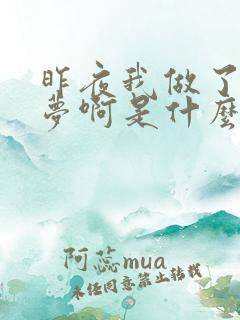 昨夜我做了
梦啊是什麽
阿蕊mua
未经同意禁止转载